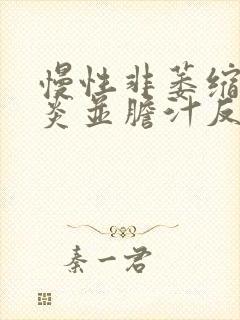 慢性非萎缩
炎並膽汁反
秦一君